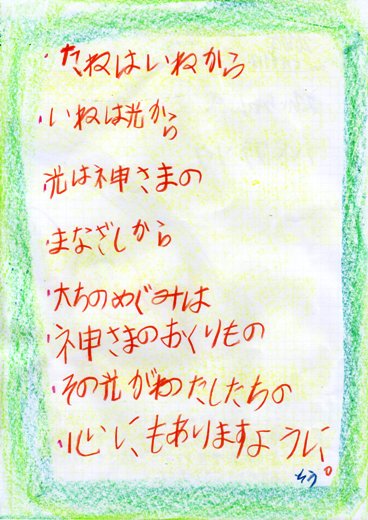 たねはいねから
いねは光から
光は神さまの
まなざしから
大ちのめぐみは
神さまのおくりもの
その光がわたしたちの
心にもありますように。